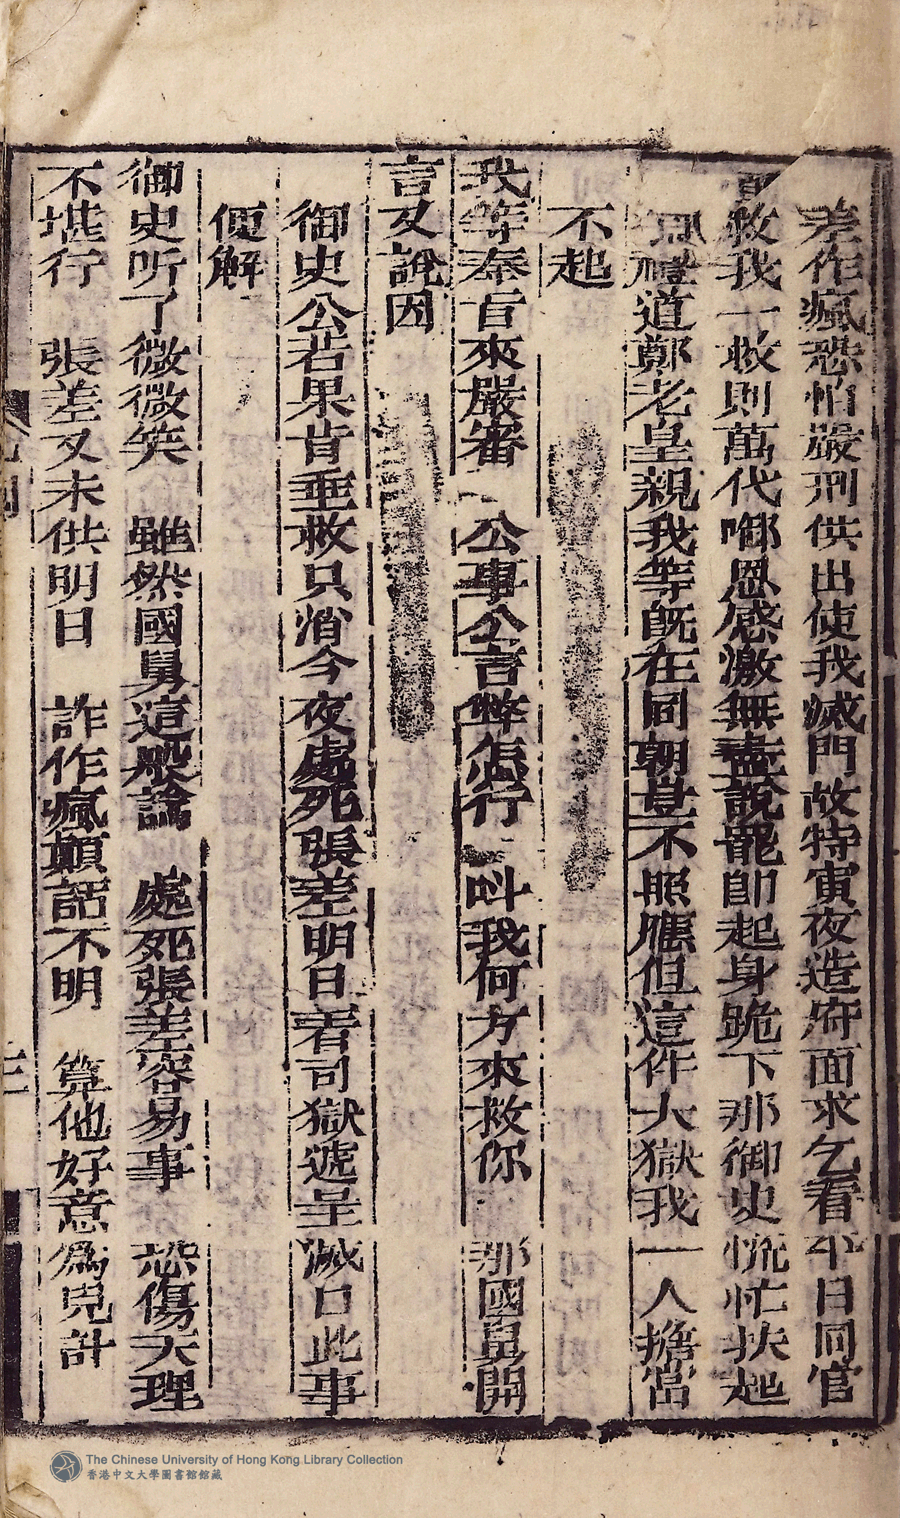 差作瘋恐怕嚴刑供出使我滅門故特寅夜造府面求乞看平日同官
救我一救則萬代啣恩感激無盡說罷即起身跪下那御史慌忙扶起
禮道鄭老皇親我等既在同朝豈不照應但這件大獄我一人擔當
不起
我等奉旨來嚴審 公事公言弊怎行 叫我何方來救你 那國舅開
言又說因
御史公若果肯垂救只消今夜處死張差明日着司獄遞呈滅口此事
便解
御史听了微微笑 雖然國舅這般論 處死張差容易事 恐傷天理
不堪行 張差又未供明日 詐作瘋顛話不明 算他好意為兒計
The Chinese University of Hong Kong Library Collection
香港中文大學圖書館館藏